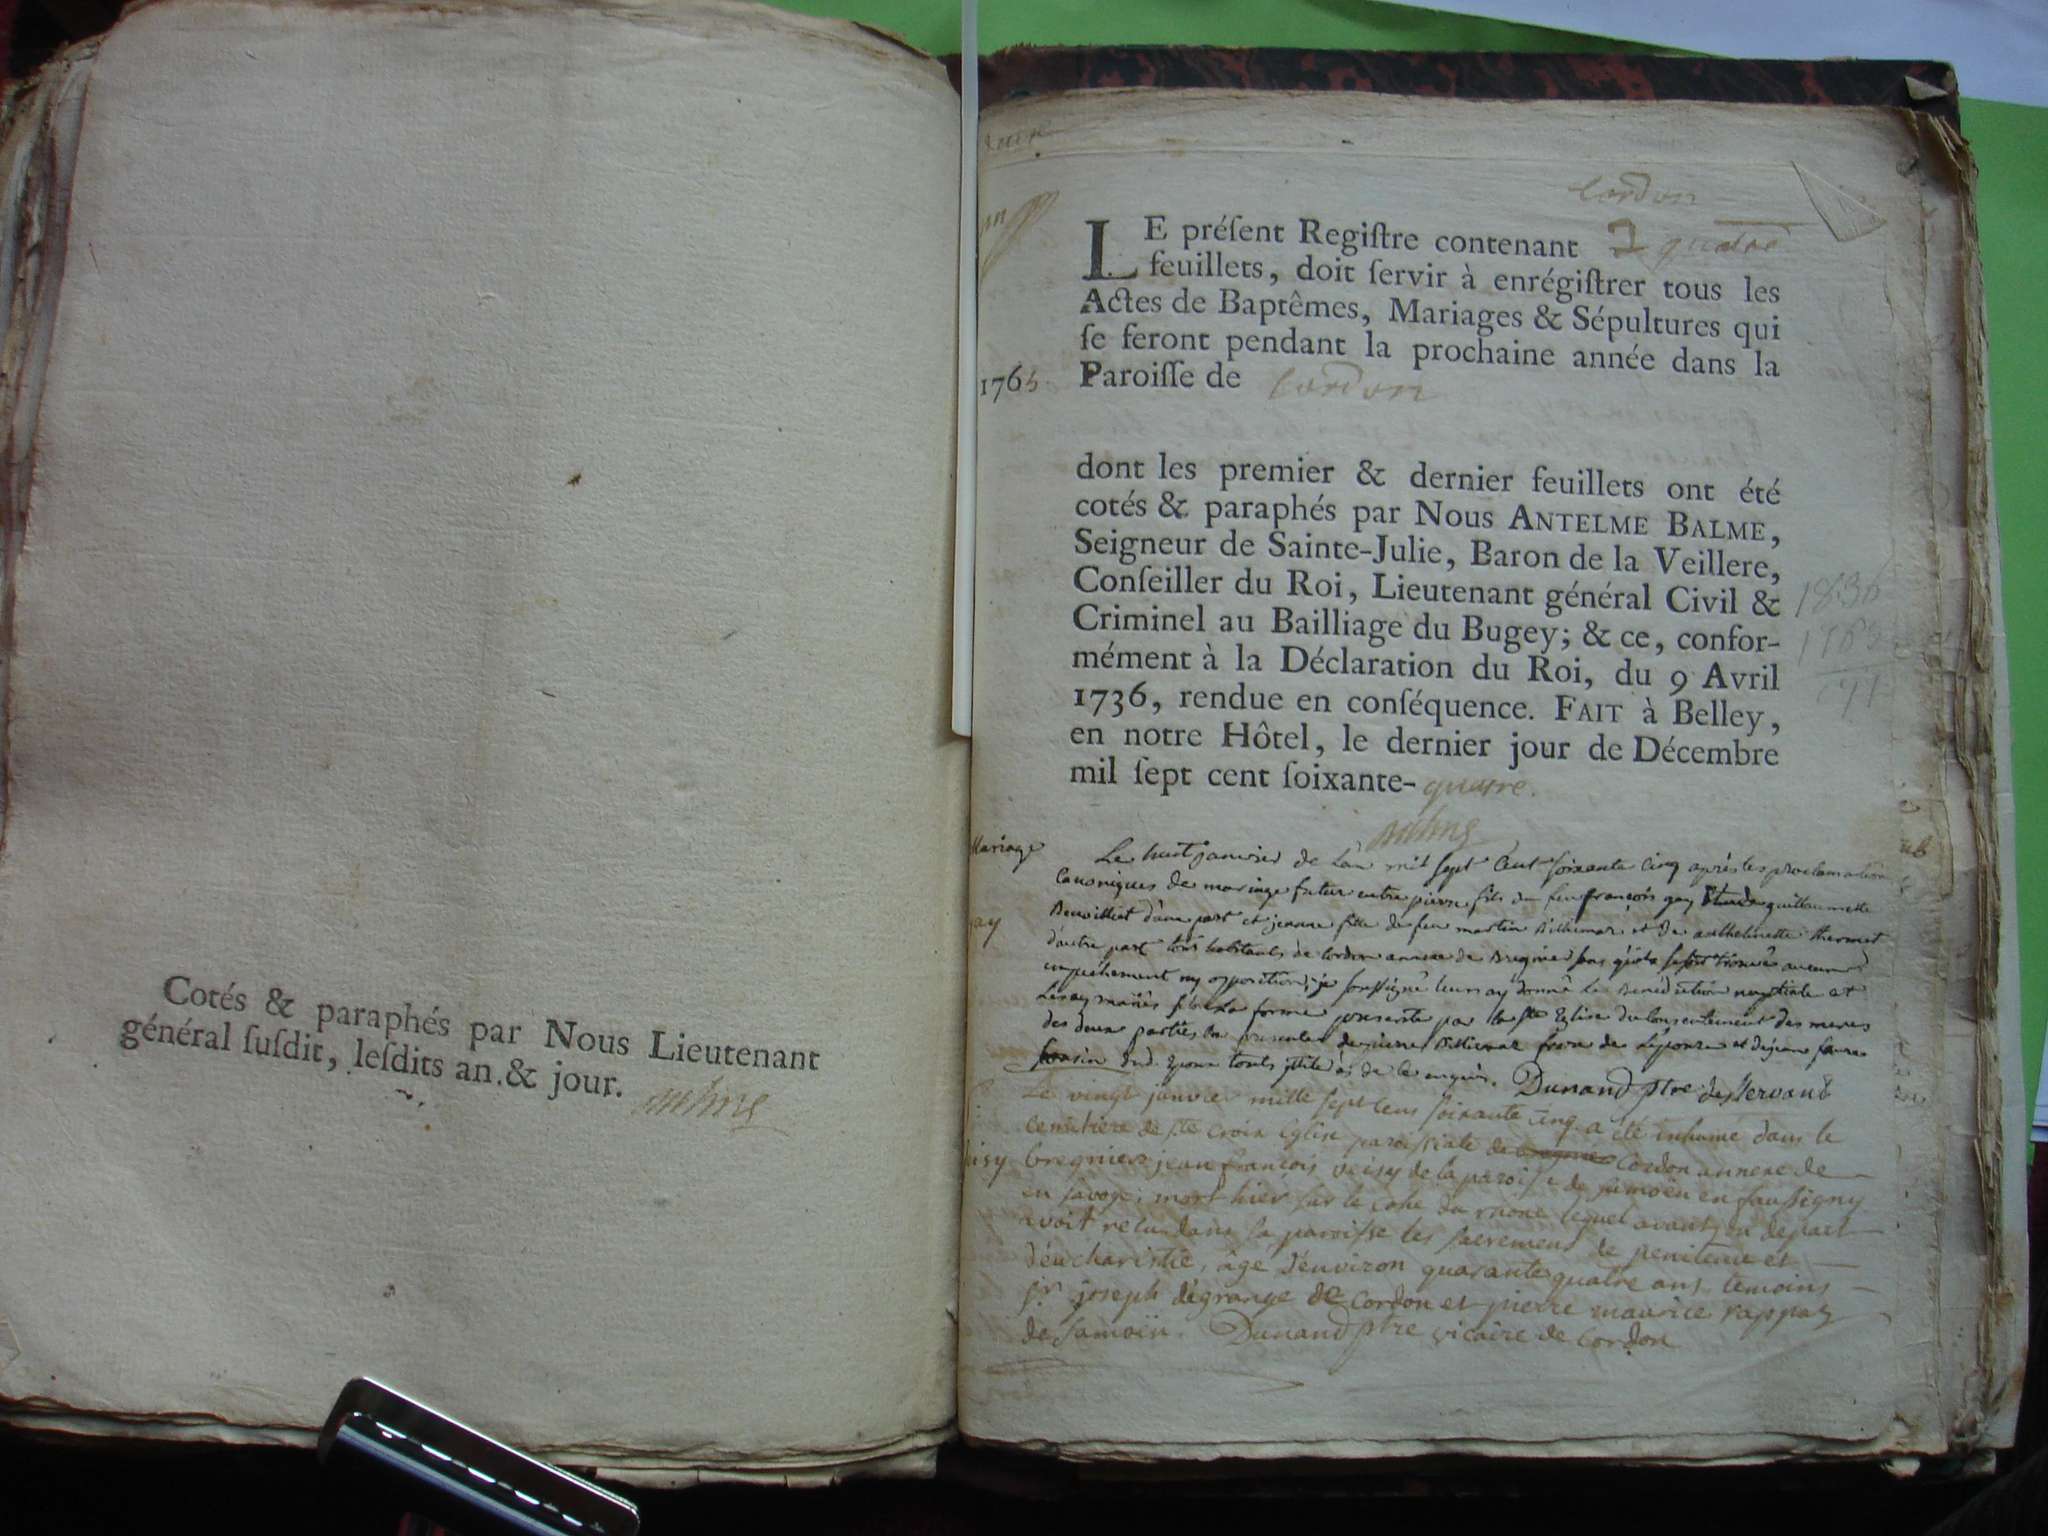 Cotés & paraphés par Nous Lieutenant
général ſuſdit, leſdits an & jour.
Cordon
LE préſent Regiſtre contenant quatre
feuillets, doit ſervir à enrégiſtrer tous les
Actes de Baptêmes, Mariages & Sépultures qui
ſe feront pendant la prochaine année dans la
1765 Paroiſſe de Cordon
dont les premier & dernier feuillets ont été
cotés & paraphés par Nous ANTELME BALME,
Seigneur de Sainte-Julie, Baron de la Veillere,
Conſeiller du Roi, Lieutenant général Civil &
Criminel au Bailliage du Bugey; & ce, confor-
mément à la Déclaration du Roi, du 9 Avril
1736, rendue en conſéquence. FAIT à Belley,
en notre Hôtel, le dernier jour de Décembre
mil ſept cent ſoixante-quatre.
1836
1765
71
Mariage
Le huit janvier de l'an mil sept Cent soixante Cinq après les proclamations
Canoniques de mariage futur entre pierre fils de feu françois gay guillaumette
d'une part et jeanne fille de feu martin et de anthelmette thermet
d'autre part tous habitants de Cordon annexe de Bregnier sans qu'il se soit trouvé aucun
empêchement ny opposition, je soussigné leurs ay donné la Bénédiction nuptiale et
les ay mariés selon la forme prescrite par la Ste Eglise du Consentement des meres
des deux parties en présence de pierre frere de l'epouse et
Dunand ptre desservant
Le vingt janvier mille sept cens soixante cinq a été inhumé dans le
cemétiere de Ste Croix Eglise paroissiale de Cordon annexe de
bregnier jean françois veisy de la paroisse de samoën en faussigny
en savoye, mort hier sur le rhone lequel avant son départ
avoit recu dans sa paroisse les sacremens de penitence et
d'eucharistie, âgé d'environ quarante quatre ans, temoins
sr joseph dégrange de Cordon et pierre maurice rappaz
de samoën. Dunand ptre vicaire de Cordon